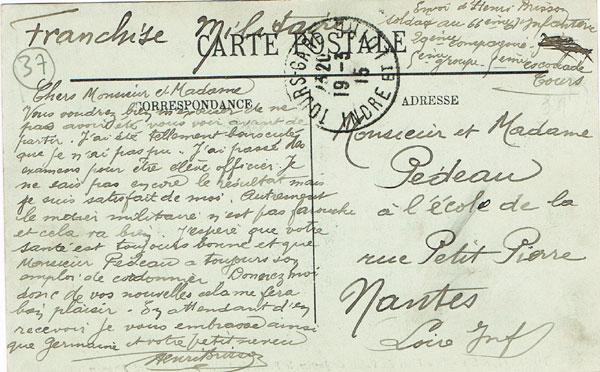 Franchise Militaire
CARTE POSTALE
37
Envoi d'Henri Brisson
soldat au 66ème d'Infanterie
29ème Compagnie
5ème groupe 5eme Escouade
Tours
TOURS-GARE
INDRE ET
13 20
19-3
15
CORRESPONDANCE
ADRESSE
Chers Monsieur et Madame
Vous voudrez bien m'excuser de ne
pas avoir été vous voir avant de
partir. J'ai été tellement bousculé
que je n'ai pas pu. J'ai passé des
examens pour être élève officier. Je
ne sais pas encore le résultat mais
je suis satisfait de moi. Autrement
le métier militaire n'est pas farouche
et cela va bien. J'espère que votre
santé est toujours bonne et que
Monsieur Pédeau a toujours son
emploi de cordonnier Donnez moi
donc de vos nouvelles cela me fera
bon plaisir. En attendant d'en
recevoir je vous embrasse ainsi
que Germaine et votre petit neveu
Henri Brisson
Monsieur et Madame
Pédeau
à l'école de la
rue Petit-Pierre
Nantes
Loire Inf